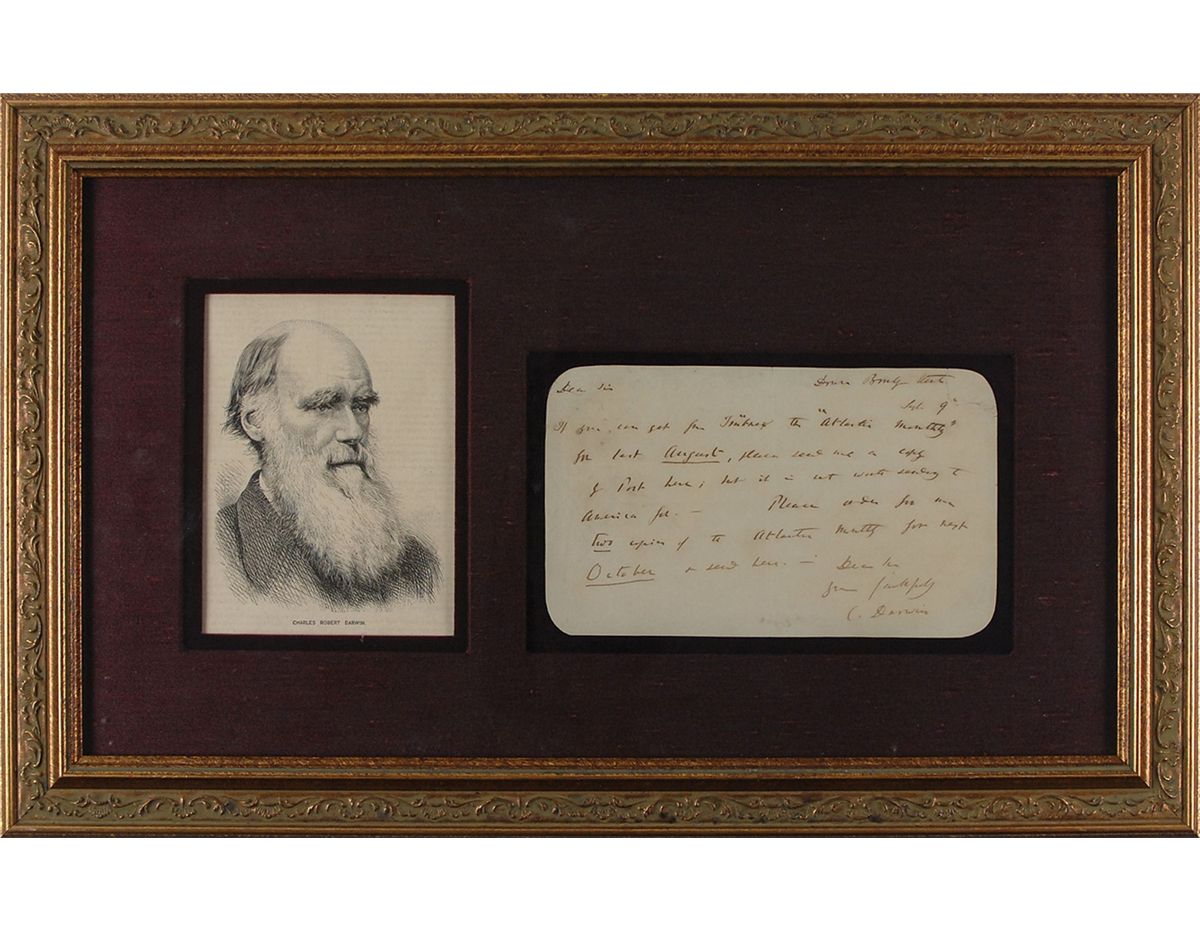 CHARLES ROBERT DARWIN
Dear Sir
Down Bromley Kent
Sept 9th
If you can get from Trübner the "Atlantic Monthly"
for last August, please send me a copy
by Post here; but it is not worth sending to
America for. — Please order for me
two copies of the Atlantic Monthly for next
October & send here. — Dear Sir
Yours faithfully
C. Darwin